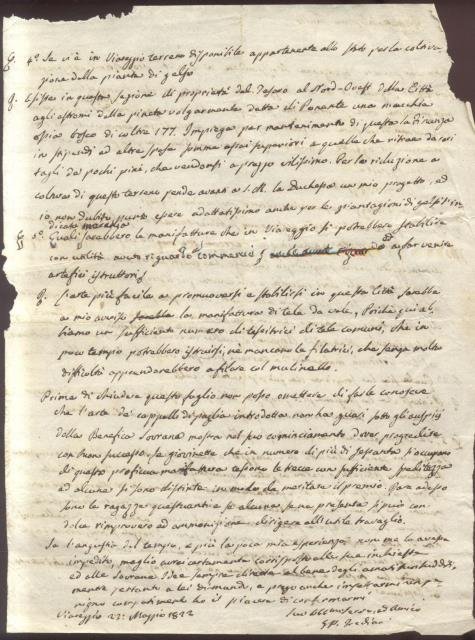 4º Se vi è in Viareggio terreno disponibile appartenente allo Stato per la coltiva-
zione della pianta di gelso
Esiste in questa sezione di proprietà del Tesoro al Nord-Ovest della Città
agli estremi della pineta volgarmente detta di Ponente una macchia
ossia bosco di coltre 177. Impiega per mantenimento di questo la Finanza
in stipendi ed altre spese somme assai superiori a quelle che ritrae da rari
tagli da pochi pini, che vendonsi a prezzo vilissimo. Per la riduzione a
coltura di questo terreno pende avanti a S. M. la Duchessa un mio progetto, ed
io non dubito punto essere adattatissimo anche per le piantagioni di gelsi in
5º Quali sarebbero le manifatture che in Viareggio si potrebbero stabilire
con utilità avuto riguardo commercio da far venire
artefici istruttori
L'arte più facile a promuoversi e stabilirsi in questa Città sarebbe
a mio avviso la manifattura di tela da vele. Poichè qui ab-
biamo un sufficiente numero di tessitrici di tele comuni, che in
poco tempo potrebbero istruirsi, nè mancono le filatrici, che senza molta
difficoltà apprenderebbero a filare col mulinello.
Prima di chiudere questo foglio non posso omettere di farle conoscere
che l'arte de' cappelli di paglia introdotta non ha guari sotto gli auspicj
della Benefica Sovrana mostra nel suo cominciamento dover progredire
con buon successo. Le giovinette che in numero di più di sessanta s'occupano
di questa proficua manifattura tessono le trecce con sufficiente sveltezza
ed alcune si sono distinte in modo da meritare il premio. Rare adesso
sono le ragazze questuanti e se alcuna se ne presenta si può con
dolce rimprovero ed ammonizione dirigere all'utile travaglio.
Se l'angustia del tempo, e più la poca mia esperienza non me lo avesse
impedito, meglio avrei certamente corrisposto alle sue inchieste
ed alle Sovrane Idee sempre dirette al bene degli amati suoi sudditi,
mentre pertanto a lei dimando, e prego anche
compatimento ho il piacere di confermarmi
Viareggio 22: Maggio 1822 Suo ed Amico